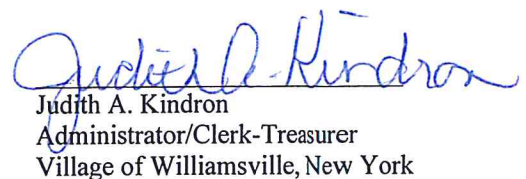 Judith A. Kindron
Judith A. Kindron
Administrator/Clerk-Treasurer
Village of Williamsville, New York